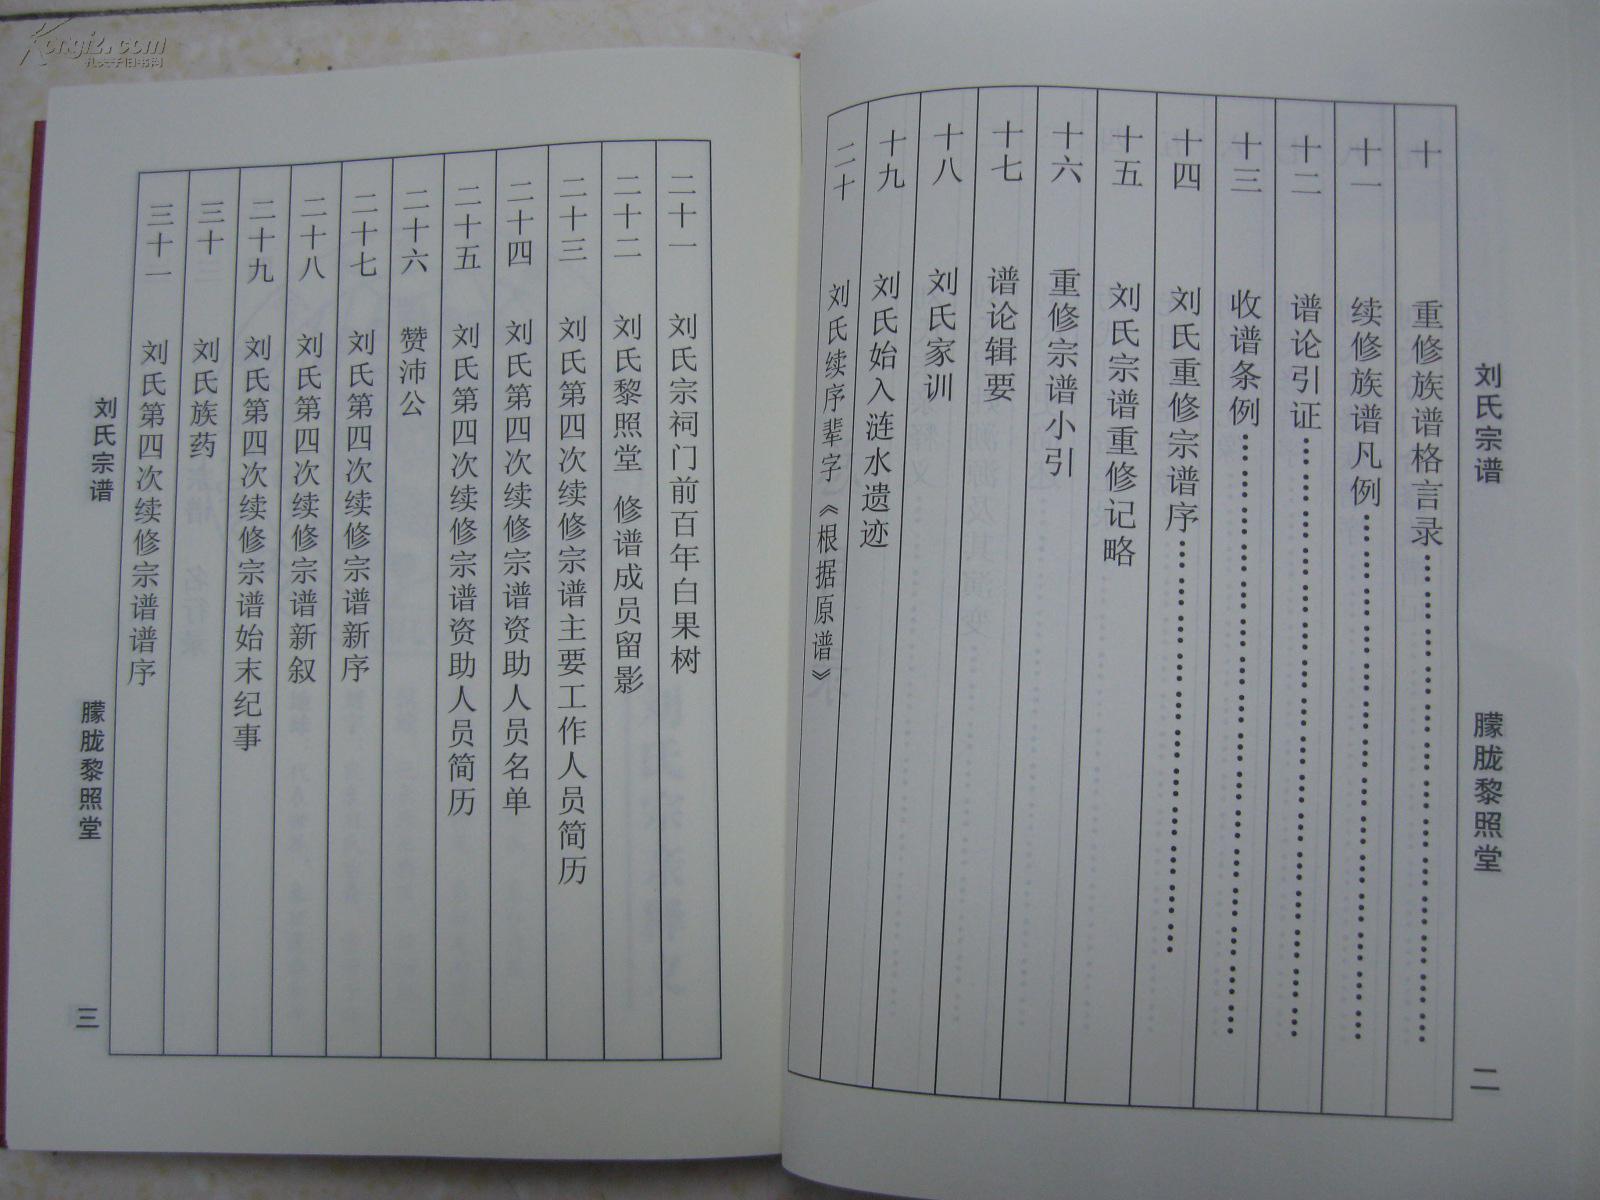 Kongfz.com
孔夫子旧书网
刘氏宗谱 朦胧黎照堂 二
十 重修族谱格言录
十一 续修族谱凡例
十二 谱论引证
十三 收谱条例
十四 刘氏重修宗谱序
十五 刘氏宗谱重修记略
十六 重修宗谱小引
十七 谱论辑要
十八 刘氏家训
十九 刘氏始入涟水遗迹
二十 刘氏续序辈字《根据原谱》
二十一 刘氏宗祠门前百年白果树
二十二 刘氏黎照堂 修谱成员留影
二十三 刘氏第四次续修宗谱主要工作人员简历
二十四 刘氏第四次续修宗谱资助人员名单
二十五 刘氏第四次续修宗谱资助人员简历
二十六 赞沛公
二十七 刘氏第四次续修宗谱新序
二十八 刘氏第四次续修宗谱新叙
二十九 刘氏第四次续修宗谱始末纪事
三十 刘氏族药
三十一 刘氏第四次续修宗谱谱序
刘氏宗谱 朦胧黎照堂 三